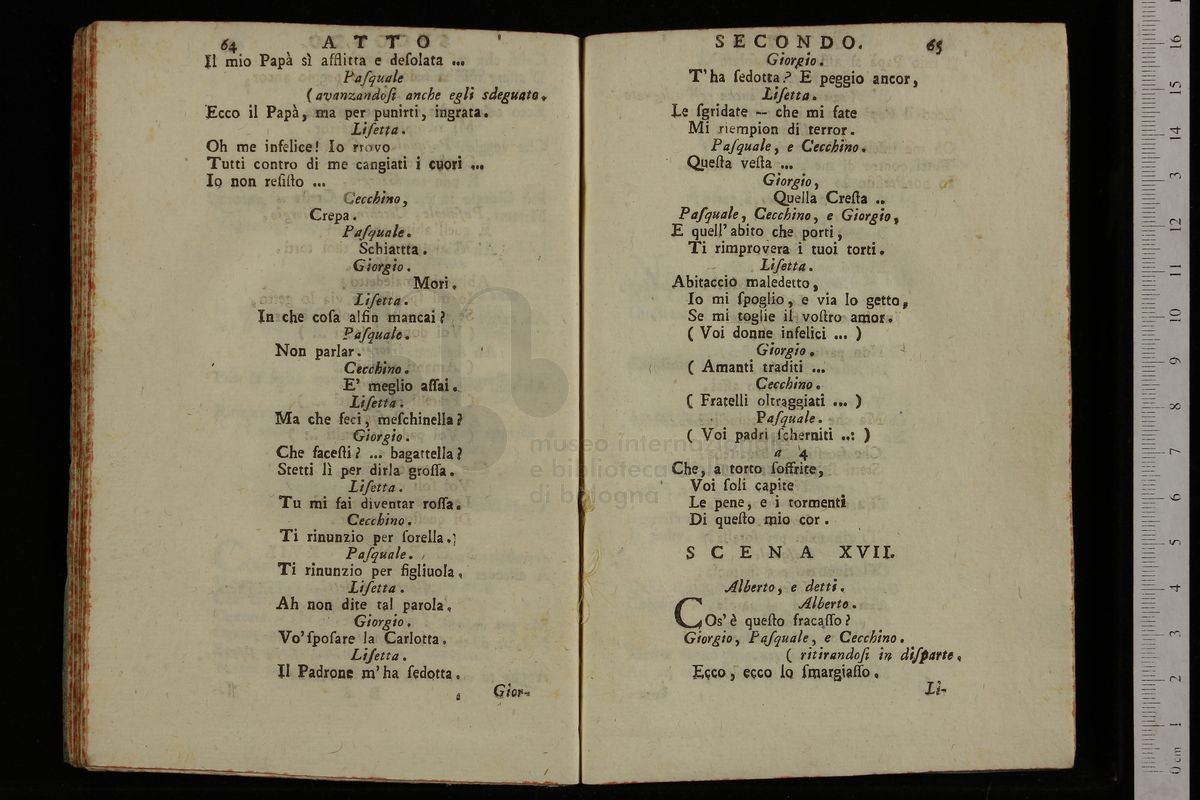 64 ATTO
Il mio Papà sì afflitta e deſolata ...
Paſquale
( avanzandoſi anche egli sdegnato.
Ecco il Papà, ma per punirti, ingrata.
Liſetta.
Oh me infelice! Io trovo
Tutti contro di me cangiati i cuori ...
Io non reſiſto ...
Cecchino,
Crepa.
Paſquale.
Schiattta.
Giorgio.
Mori.
Liſetta.
In che coſa alfin mancai?
Paſquale.
Non parlar.
Cecchino.
E' meglio aſſai.
Liſetta.
Ma che feci, meſchinella?
Giorgio.
Che faceſti? ... bagattella?
Stetti lì per dirla groſſa.
Liſetta.
Tu mi fai diventar roſſa.
Cecchino.
Ti rinunzio per ſorella.
Paſquale.
Ti rinunzio per figliuola,
Liſetta.
Ah non dite tal parola,
Giorgio.
Vo' ſpoſare la Carlotta.
Liſetta.
Il Padrone m'ha ſedotta.
Gior-
SECONDO. 65
Giorgio.
T'ha ſedotta? E peggio ancor,
Liſetta.
Le ſgridate — che mi fate
Mi riempion di terror.
Paſquale, e Cecchino.
Queſta veſta ...
Giorgio,
Quella Creſta ..
Paſquale, Cecchino, e Giorgio,
E quell' abito che porti,
Ti rimprovera i tuoi torti.
Liſetta.
Abitaccio maledetto,
Io mi ſpoglio, e via lo getto,
Se mi toglie il voſtro amor.
( Voi donne infelici ... )
Giorgio.
( Amanti traditi ...
Cecchino.
( Fratelli oltraggiati ... )
Paſquale.
( Voi padri ſcherniti ..: )
a 4
Che, a torto ſoffrite,
Voi ſoli capite
Le pene, e i tormenti
Di queſto mio cor.
SCENA XVII.
Alberto, e detti.
Alberto.
COs'è queſto fracaſſo?
Giorgio, Paſquale, e Cecchino.
( ritirandoſi in diſparte,
Ecco, ecco lo ſmargiaſſo.
Li-
museo internazionale
e biblioteca
di bologna
0 cm 1 2 3 4 5 6 7 8 9 10 11 12 13 14 15 16